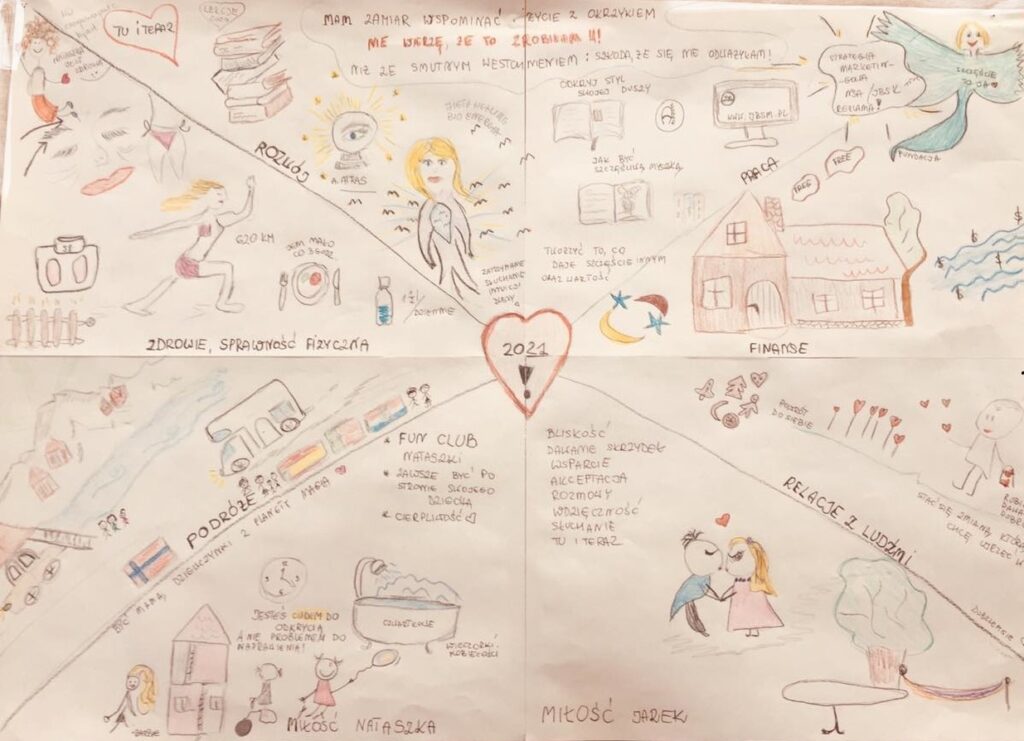 TU i TERAZ
LEKCJE
MAM ZAMIAR WSPOMINAĆ ŻYCIE Z OKRZYKIEM
NIE WIERZĘ, ŻE TO ZROBIŁAM!
NIŻ ZE SMUTNYM WESTCHNIENIEM: SZKODA, ŻE SIĘ NIE ODWAŻYŁAM!
ROZWÓJ
THETA HEALING
BIO ENERGIA
ODKRYJ STYL
SWOJEJ DUSZY
WWW.JBSM.PL
STRATEGIA
MARKETIN-
GOWA
REKLAMA!
SZCZĘŚCIE
TO JA
FUNDACJA
JAK BYĆ
SZCZĘŚLIWĄ
PRACA
FREE
FREE
TWORZYĆ TO, CO
DAJE SZCZĘŚCIE INNYM
ORAZ WARTOŚĆ
620 KM
JEM MAŁO
CO 3 GODZ.
DZIENNIE
ZATRZYMANIE
SŁUCHANIE
INTUICJI
DUSZY
ZDROWIE, SPRAWNOŚĆ FIZYCZNA
2021
FINANSE
FUN CLUB
NATASZKI
ZAWSZE BYĆ PO
STRONIE SWOJEGO
DZIECKA
CIERPLIWOŚĆ
PODRÓŻE
BYĆ MAMĄ DZIEWCZYNKI Z PLANETY MAGIA
BLISKOŚĆ
DAWANIE SKRZYDEŁ
WSPARCIE
AKCEPTACJA
ROZMOWY
WDZIĘCZNOŚĆ
SŁUCHANIE
TU I TERAZ
POWRÓT
DO SIEBIE
RELACJE Z LUDŹMI
STAĆ SIĘ ZMIANĄ, KTÓRĄ
CHCĘ WIDZIEĆ W
JESTEŚ CUDEM DO
ODKRYCIA
A NIE PROBLEMEM DO
NAPRAWIENIA!
WIECZORKI
KOBIECOŚCI
BARBIE
MIŁOŚĆ NATASZKA
MIŁOŚĆ JAREK